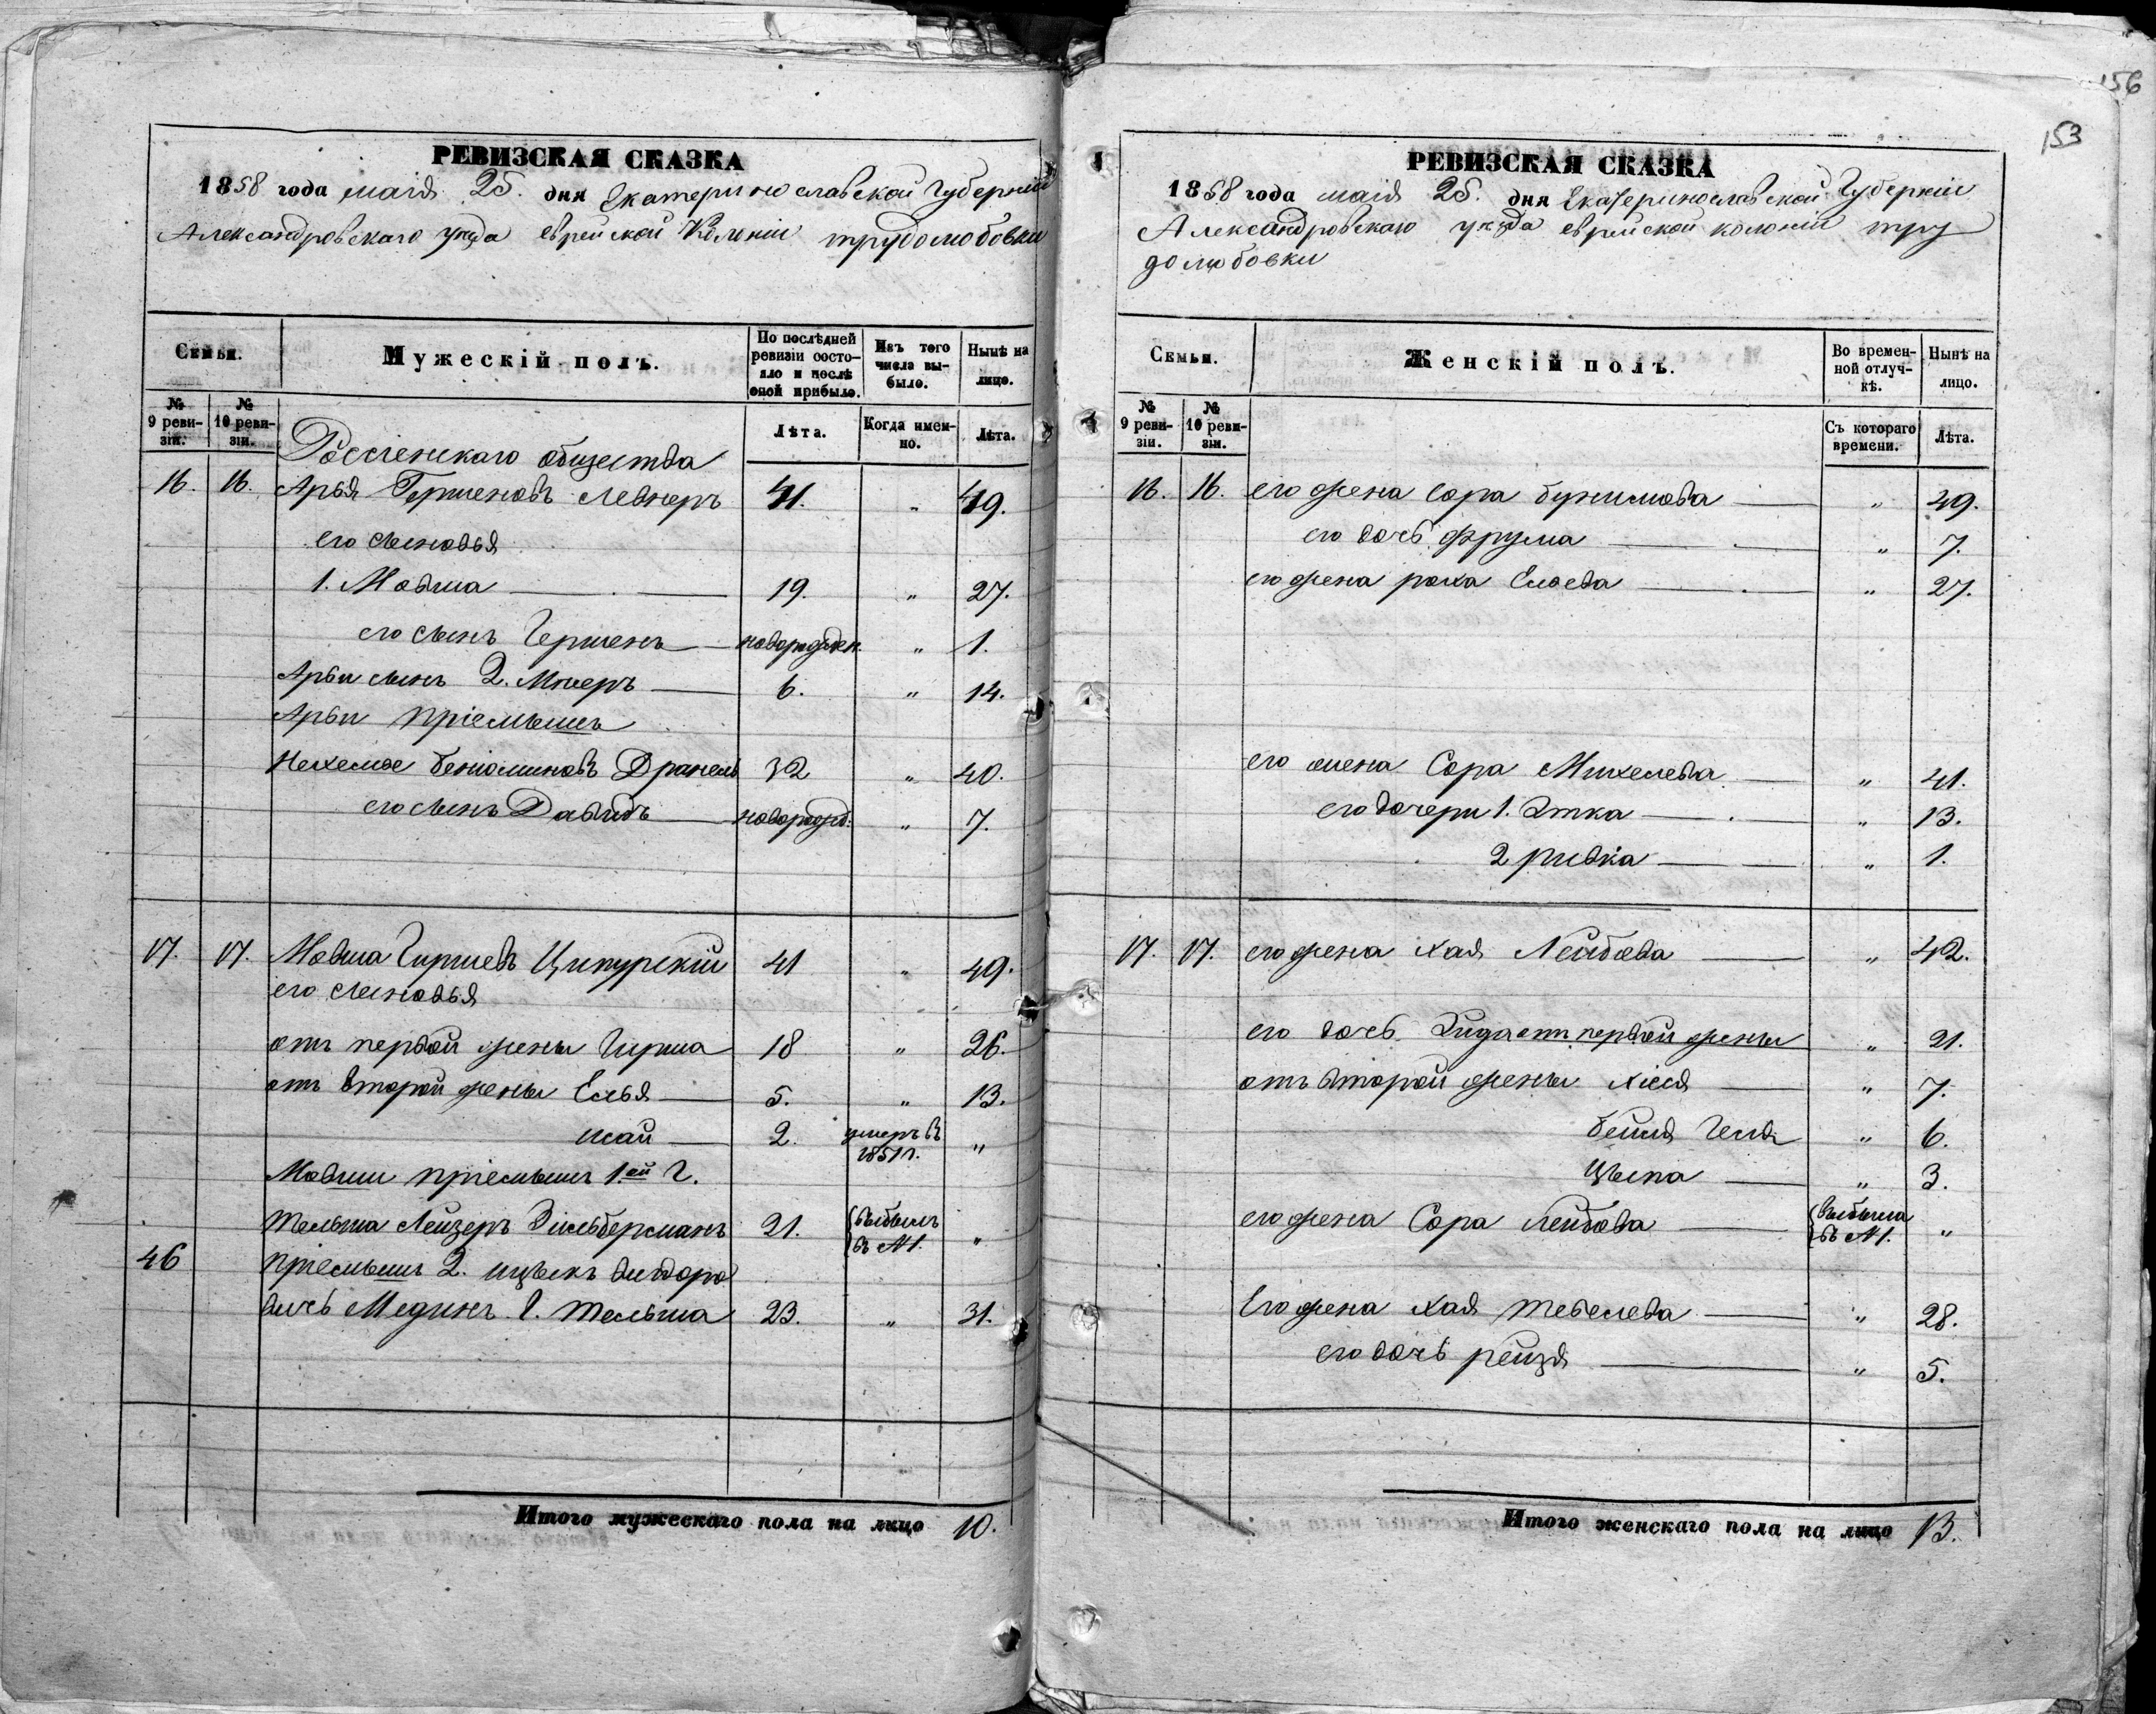 РЕВИЗСКАЯ СКАЗКА
1858 года маія 25. дня Екатеринославской Губерніи
Александровскаго уезда еврейской Колоніи трудолюбовки
Семьи.
Мужескій полъ.
По послѣдней ревизіи состояло и послѣ оной прибыло.
Изъ того числа выбыло.
Нынѣ на лицо.
№ 9 ревизіи.
№ 10 ревизіи.
Лѣта.
Когда именно.
Лѣта.
Россіенскаго общества
16. 16. Арья Гершеновъ Левнеръ 41. " 49.
его сыновья
1. Мовша 19. " 27.
его сынъ Гершенъ новорожден. " 1.
Арьи сынъ 2. Мееръ 6. " 14.
Арьи пріемышъ
Нехемье Беніоминовъ Дранель 32 " 40.
его сынъ Давидъ новорожд: " 7.
17. 17. Мовша Гиршевъ Ципурскій 41 " 49.
его сыновья
отъ первой жены Гирша 18 " 26.
отъ второй жены Елья 5. " 13.
шай 2. умеръ въ 1851 г. "
Мовши пріемышъ 1.ой Г.
Тельша Лейзеръ Зильберманъ 21. выбылъ въ №1. "
46 пріемышъ 2. ицыкъ
Мединъ Г. Тельша 23. " 31.
Итого мужескаго пола на лицо 10.
156
153
РЕВИЗСКАЯ СКАЗКА
1858 года маія 25. дня Екатеринославской Губерніи
Александровскаго уезда еврейской колоніи тру
долюбовки
Семьи.
Женскій полъ.
Во временной отлучкѣ.
Нынѣ на лицо.
№ 9 ревизіи.
№ 10 ревизіи.
Съ котораго времени.
Лѣта.
16. 16. его жена Сора " 49.
его дочь Фрума " 7.
его жена роха Ельева " 27.
его жена Сора Михелева " 41.
его дочери 1. Этка " 13.
2 ривка " 1.
17. 17. его жена хая Лейбова " 42.
его дочь Зида отъ первой жены " 21.
отъ второй жены " 7.
бейля " 6.
Цыпа " 3.
его жена Сора Лейбова выбыла въ №1. "
Его жена хая тевелева " 28.
его дочь рейзя " 5.
Итого женскаго пола на лицо 13.